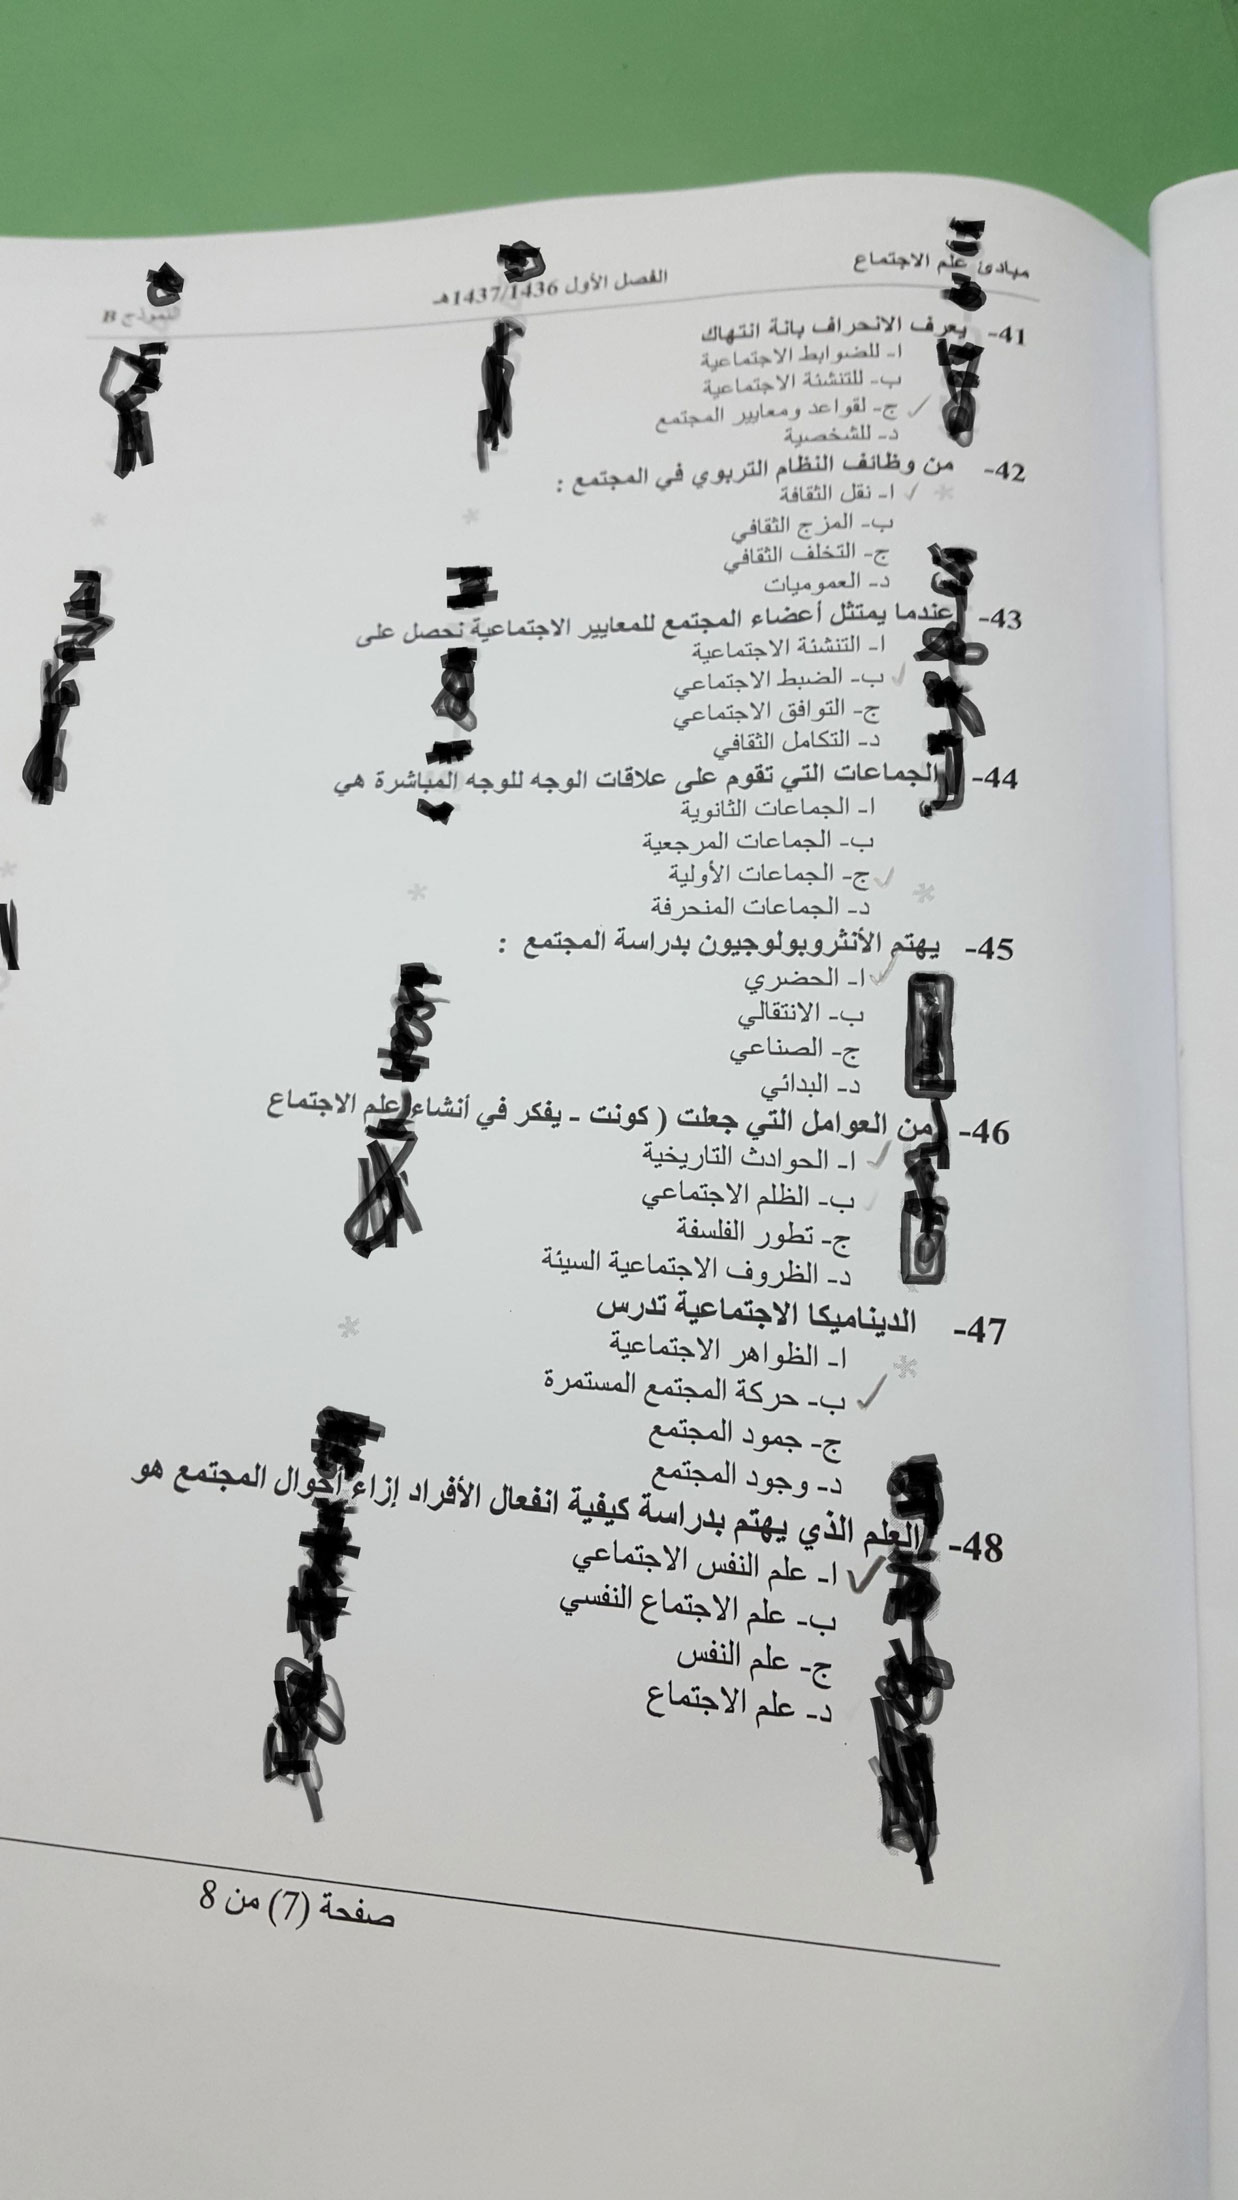 مبادئ علم الاجتماع الفصل الأول 1437/1436هـ النموذج B
41- يعرف الانحراف بانة انتهاك
ا- للضوابط الاجتماعية
ب- للتنشئة الاجتماعية
ج- لقواعد ومعايير المجتمع
د- للشخصية
42- من وظائف النظام التربوي في المجتمع :
ا- نقل الثقافة
ب- المزج الثقافي
ج- التخلف الثقافي
د- العموميات
43- عندما يمتثل أعضاء المجتمع للمعايير الاجتماعية نحصل على
ا- التنشئة الاجتماعية
ب- الضبط الاجتماعي
ج- التوافق الاجتماعي
د- التكامل الثقافي
44- الجماعات التي تقوم على علاقات الوجه للوجه المباشرة هي
ا- الجماعات الثانوية
ب- الجماعات المرجعية
ج- الجماعات الأولية
د- الجماعات المنحرفة
45- يهتم الأنثروبولوجيون بدراسة المجتمع :
ا- الحضري
ب- الانتقالي
ج- الصناعي
د- البدائي
46- من العوامل التي جعلت ( كونت - يفكر في أنشاء علم الاجتماع
ا- الحوادث التاريخية
ب- الظلم الاجتماعي
ج- تطور الفلسفة
د- الظروف الاجتماعية السيئة
47- الديناميكا الاجتماعية تدرس
ا- الظواهر الاجتماعية
ب- حركة المجتمع المستمرة
ج- جمود المجتمع
د- وجود المجتمع
48- العلم الذي يهتم بدراسة كيفية انفعال الأفراد إزاء أحوال المجتمع هو
ا- علم النفس الاجتماعي
ب- علم الاجتماع النفسي
ج- علم النفس
د- علم الاجتماع
صفحة (7) من 8